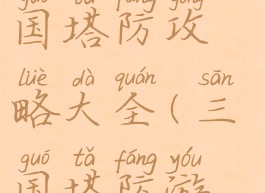 guó tǎ fáng gōng
国塔防攻
lüè dà quán sān
略大全(三
guó tǎ fáng yóu
国塔防游